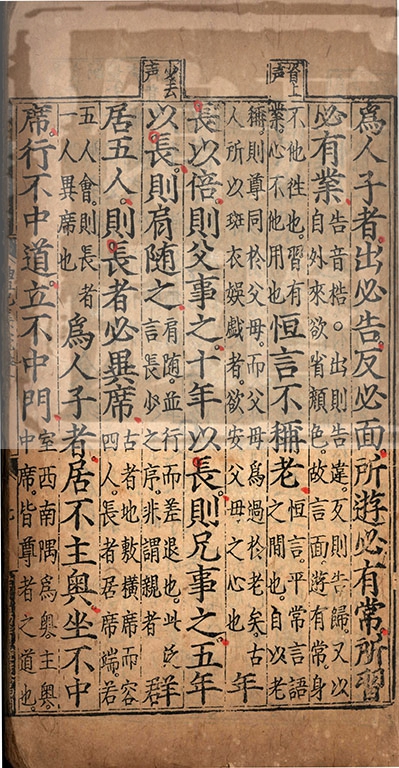 省上声
少去声
為人子者。出必告。反必面。所遊必有常。所習
必有業。
告音梏。出則告違。反則告歸。又以
自外來欲省顏色。故言面。遊有常。身
不他往也。習有
業。心不他用也
恒言不稱老
恒言。平常言語
之間也。自以老
稱。則尊同於父母。而父母爲過於老矣。古
人所以斑衣娛戲者。欲安父母之心也
年
長以倍。則父事之。十年以長。則兄事之。五年
以長。則肩随之
肩随。並行而差退也。此泛
言長少之序。非謂親者
羣
居五人。則長者必異席
古者地敷横席而容
四人。長者居席端。若
五人會。則長者
一人異席也
為人子者。居不主奥。坐不中
席。行不中道。立不中門
室西南隅爲奥。主奥。
中席。皆尊者之道也。